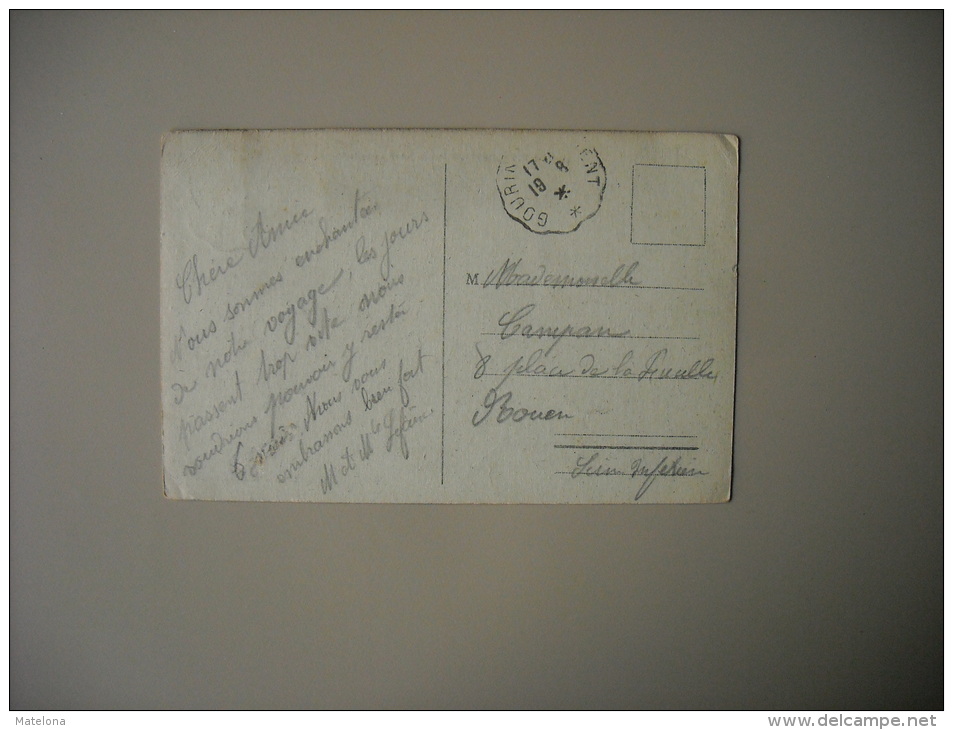 Chère Amie
Nous sommes enchantés
de notre voyage, les jours
passent trop vite nous
voudrions pouvoir y resté
6 mois. Nous vous
embrassons bien fort
M et Mme
GOURIN ENT
17 8
19
M Mademoiselle
Campan
8 place de la
Rouen
Seine Inférieure
Matelona
http://www.delcampe.net